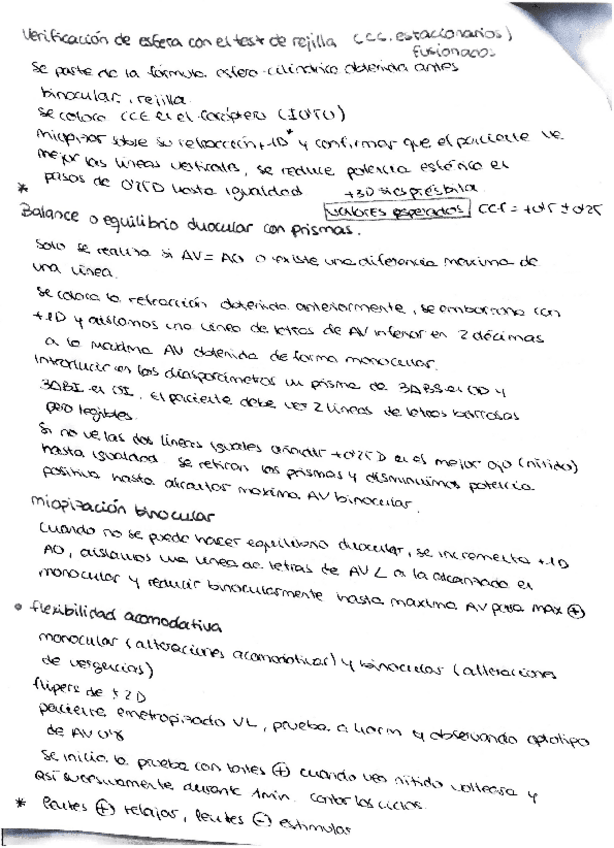 Verificación de esfera con el test de rejilla (CCC. estacionarios)
fusionados
Se parte de la fórmula esfero-cilíndrica obtenida antes
binocular, rejilla
Se coloca CCE en el foróptero
miopizar sobre su refracción +1D* y confirmar que el paciente ve
mejor las líneas verticales, se reduce potencia esférica en
pasos de 0'25D hasta igualdad +3D si es présbita
* valores esperados CCF = +0'5 ± 0'25
Balance o equilibrio duocular con prismas.
Solo se realiza si AV = AO o existe una diferencia máxima de
una línea.
Se coloca la refracción obtenida anteriormente, se emborrona con
+1D y aislamos una línea de letras de AV inferior en 2 décimas
a la máxima AV obtenida de forma monocular.
Introducir en los diasporámetros un prisma de 3ΔBS en OD y
3ΔBI en OI. El paciente debe ver 2 líneas de letras borrosas
pero legibles.
Si no ve las dos líneas iguales añadir +0'25D en el mejor ojo (nítido)
hasta igualdad se retiran los prismas y disminuimos potencia
positiva hasta alcanzar máxima AV binocular.
miopización binocular
Cuando no se puede hacer equilibrio duocular, se incrementa +1D
AO, aislamos una línea de letras de AV < a la alcanzada en
monocular y reducir binocularmente hasta máxima AV para max ⊕
• flexibilidad acomodativa
monocular (alteraciones acomodativas) y binocular (alteraciones
de vergencias)
flipers de ±2D
paciente emetropizado VL, prueba a 40cm y observando optotipo
de AV 0'8
Se inicia la prueba con lentes ⊕ cuando vea nítido voltearse y
así sucesivamente durante 1min. contar los ciclos.
* lentes ⊕ relajar, lentes ⊖ estimular